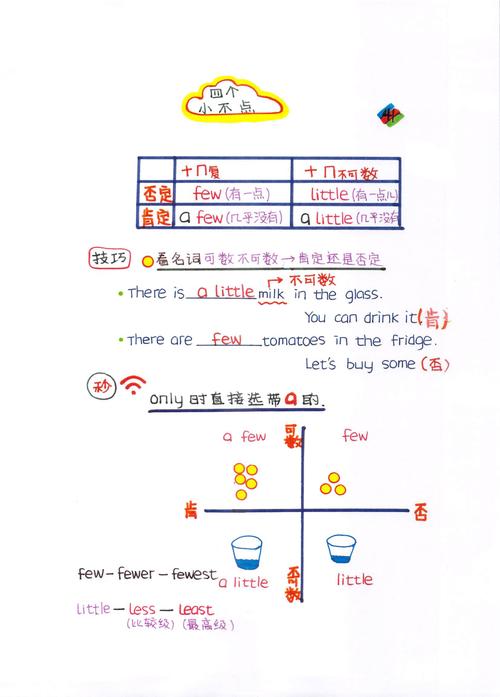 四个
小不点
41
+几复 +几不可数
否定 few(有一点) little(有一点儿)
肯定 a few(几乎没有) a little(几乎没有)
技巧 看名词可数不可数→肯定还是否定
不可数
There is a little milk in the glass.
You can drink it(肯)
There are few tomatoes in the fridge.
Let's buy some(否)
秒
only 时直接选带a的.
a few 可数 few
肯 否
a little 不可数 little
few-fewer-fewest
little-less-least
(比较级)(最高级)